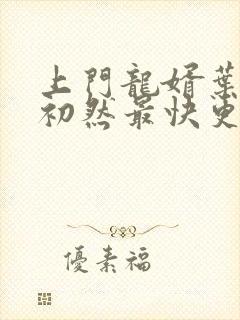 上門龍婿葉
初然最快更
優素福